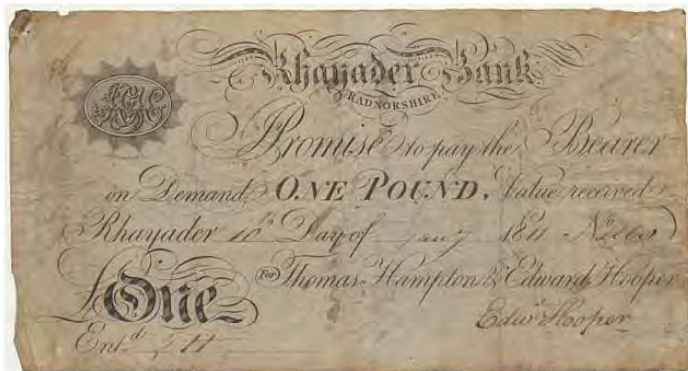 Rhayader Bank
RADNORSHIRE
I Promise to pay the Bearer
on Demand ONE POUND, Value received
Rhayader 10th Day of Jany 1811 No
For Thomas Hampton & Edward Hooper
£One
Edwd Hooper
Entd